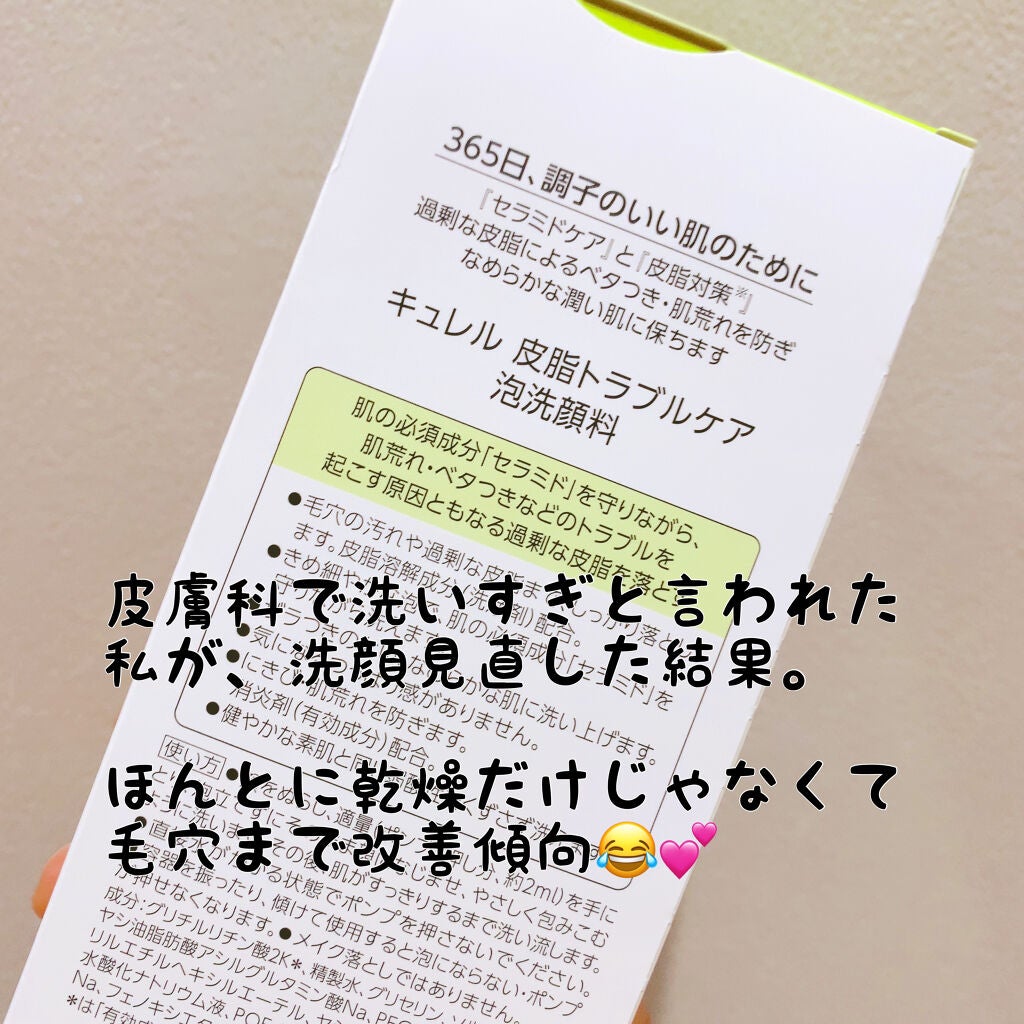 365日、調子のいい肌のために
『セラミドケア』と『皮脂対策※』
過剰な皮脂によるベタつき・肌荒れを防ぎ
なめらかな潤い肌に保ちます
キュレル 皮脂トラブルケア
泡洗顔料
肌の必須成分「セラミド」を守りながら、
肌荒れ・ベタつきなどのトラブルを
起こす原因ともなる過剰な皮脂を落とす
●毛穴の汚れや過剰な皮脂
ます。皮脂溶解成分
●きめ細や
肌の必須成分「セラミド」を
な肌に洗い上げます
感がありません。
●にきび 肌荒れを防ぎます。
消炎剤(有効成分)配合。
●健やかな素肌と
皮膚科で洗いすぎと言われた
私が、洗顔見直した結果。
ほんとに乾燥だけじゃなくて
毛穴まで改善傾向😂💕
使い方
約2ml)を手に
やさしく包みこむ
洗いま
の後、肌がすっきりするまで洗い流します。
状態でポンプを押さないでください。
を振ったり、傾けて使用すると泡にならない・ポンプ
が押せなくなります。●メイク落としではありません。
成分:グリチルリチン酸2K*、精製水、グリセリン、
ヤシ油脂肪酸アシルグルタミン酸Na、
リルエチルヘキシルエーテル、
水酸化ナトリウム液、
Na、フェノキシエタ
*は「有効成